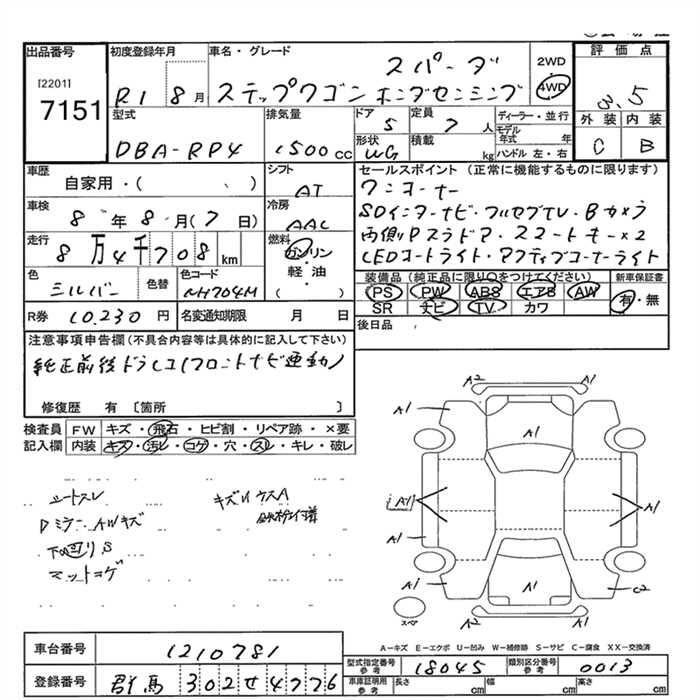 出品番号
[2201]
7151
初度登録年月
R1 8月
車名・グレード
スパーダ
ステップワゴン ホンダセンシング
2WD
4WD
評価点
3.5
外装 内装
C B
型式
DBA-RP4
排気量
1500cc
ドア
5
定員
7人
形状
WG
積載
kg
ディーラー・並行
モデル年式 年
ハンドル 左・右
車歴
自家用・( 、 )
シフト
AT
車検
8年8月(7日)
冷房
AAC
走行
8万4千708km
燃料
ガソリン
・
軽・油
( )
色
シルバー
色替
色コード
NH704M
R券 10,230円
名変通知期限 月 日
セールスポイント (正常に機能するものに限ります)
ワンオーナー
SDインターナビ・フルセグTV・Bカメラ
両側Pスラドア・スマートキー×2
LEDコートライト・アクティブコーナーライト
装備品 (純正品に限り○をつけてください)
PS PW ABS エアB AW
SR ナビ TV カワ
新車保証書
有・無
後日品
注意事項申告欄 (不具合内容等は具体的に記入して下さい)
純正前後ドラレコ(フロントナビ連動)
修復歴 有 〔箇所 〕
検査員記入欄
FW キズ・飛石・ヒビ割・リペア跡・×要
内装 キズ・汚レ・コゲ・穴・スレ・キレ・破レ
シートスレ
Dミラー、AWキズ
下回りS
マットコゲ
キズ
A2 A1
A1 A1
A1
A1 A1
A1
A1 A1 C2
スペア
A2 A1
A-キズ E-エクボ U-凹み W-補修跡 S-サビ C-腐食 XX-交換済
車台番号 1210781
登録番号 群馬 302せ4776
型式指定番号 参考 18045
類別区分番号 参考 0013
車庫証明用 参考 長さ cm 幅 cm 高さ cm